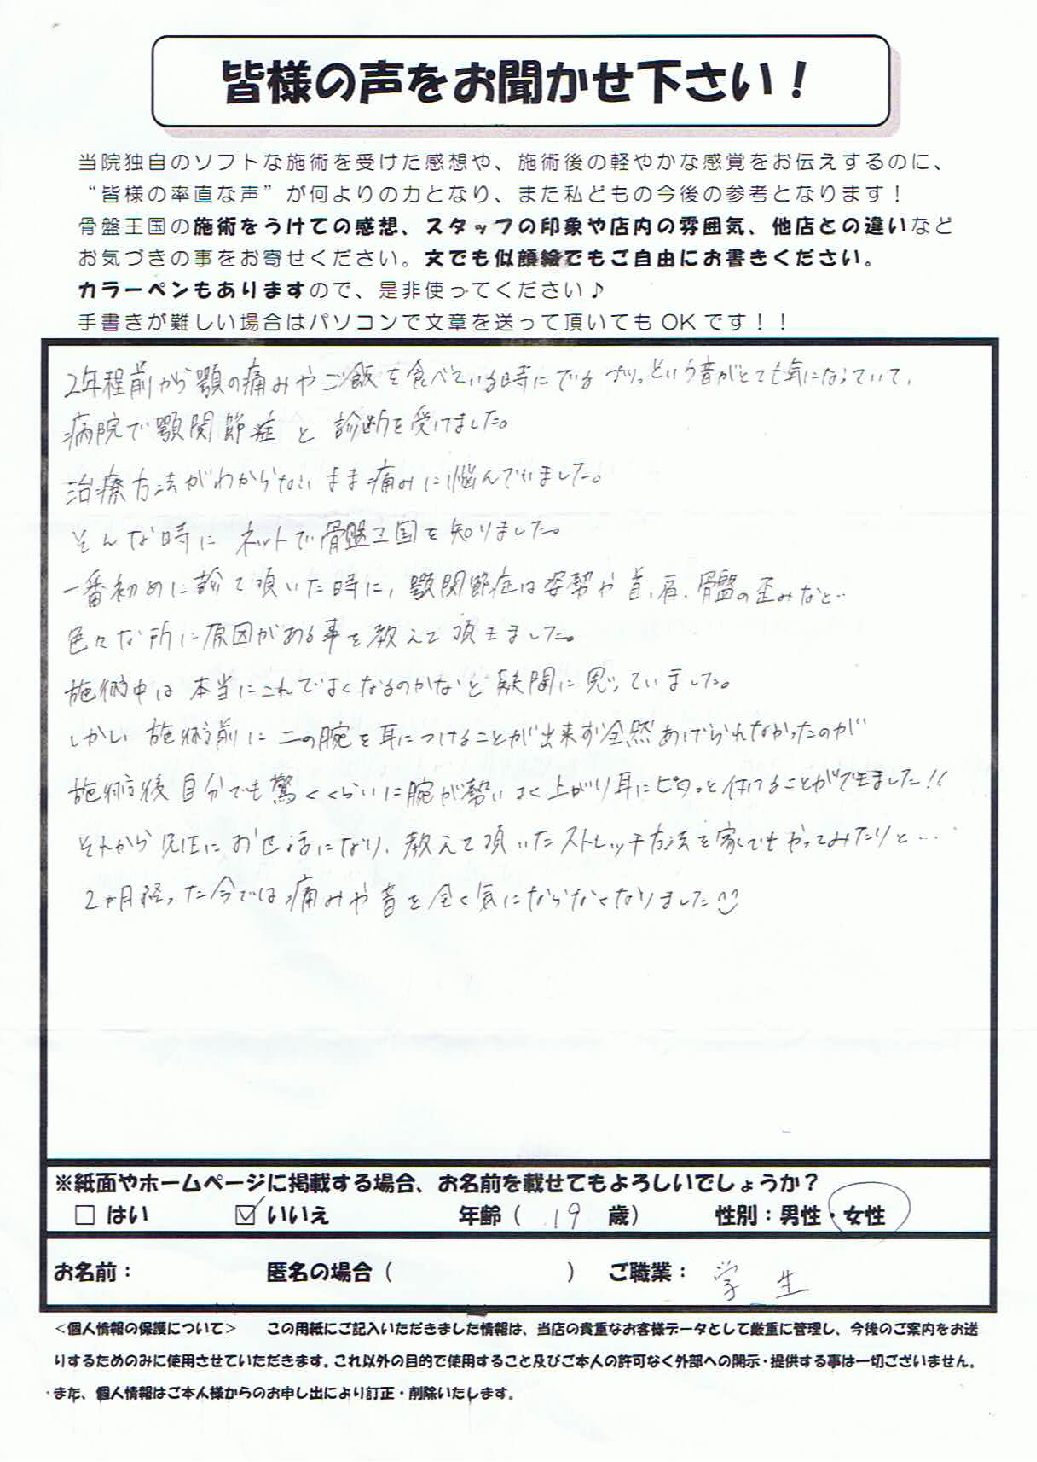 皆様の声をお聞かせ下さい！
当院独自のソフトな施術を受けた感想や、施術後の軽やかな感覚をお伝えするのに、
“皆様の率直な声”が何よりの力となり、また私どもの今後の参考となります！
骨盤王国の施術をうけての感想、スタッフの印象や店内の雰囲気、他店との違いなど
お気づきの事をお寄せください。文でも似顔絵でもご自由にお書きください。
カラーペンもありますので、是非使ってください♪
手書きが難しい場合はパソコンで文章を送って頂いてもOKです！！
2年程前から顎の痛みやご飯を食べている時にでる という音がとても気になっていて、
病院で顎関節症と診断を受けました。
治療方法がわからないまま痛みに悩んでいました。
そんな時にネットで骨盤王国を知りました。
一番初めに診て頂いた時に、顎関節症は姿勢や首、肩、骨盤の歪みなど…
色々な所に原因がある事を教えて頂きました。
施術中は本当にこれでよくなるのかなと疑問に思っていました。
しかし施術前に二の腕を耳につけることが出来ず全然あげられなかったのが
施術後自分でも驚くくらいに腕が勢いよく上がり耳にピタっと付けることができました!!
それから先生にお世話になり、教えて頂いたストレッチ方法を家でもやってみたりと…
2ヶ月経った今では痛みや音を全く気にならなくなりました
※紙面やホームページに掲載する場合、お名前を載せてもよろしいでしょうか？
□ はい ☑ いいえ 年齢（ 19 歳） 性別：男性・女性
お名前： 匿名の場合（ ） ご職業： 学生
＜個人情報の保護について＞ この用紙にご記入いただきました情報は、当店の貴重なお客様データとして厳重に管理し、今後のご案内をお送
りするためのみに使用させていただきます。これ以外の目的で使用すること及びご本人の許可なく外部への開示・提供する事は一切ございません。
また、個人情報はご本人様からのお申し出により訂正・削除いたします。